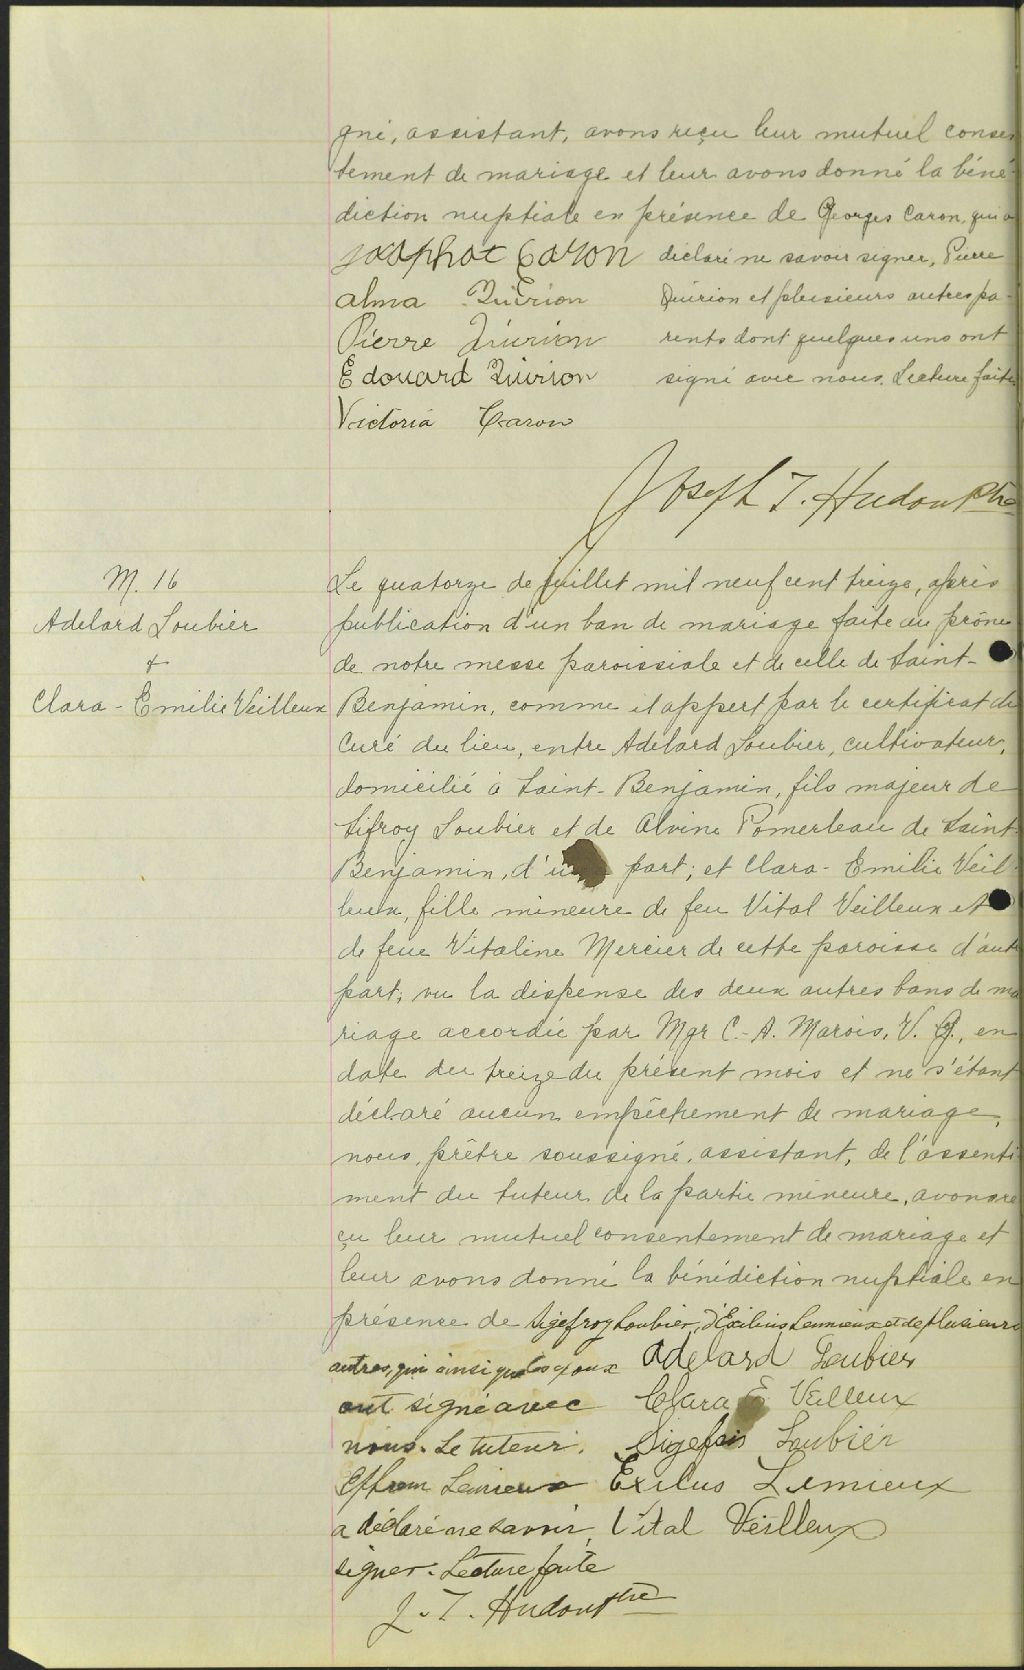 gné, assistant, avons reçu leur mutuel consen
tement de mariage et leur avons donné la béné-
diction nuptiale en présence de Georges Caron, qui a
déclaré ne savoir signer, Pierre
Quirion et plusieurs autres pa-
rents dont quelques uns ont
signé avec nous. Lecture faite.
Josaphat Caron
Alma Quirion
Pierre Quirion
Edouard Quirion
Victoria Caron
Joseph T. Hudon Ptre
M. 16
Adelard Loubier
&
Clara - Emilie Veilleux
Le quatorze de juillet mil neuf cent treize, après
publication d'un ban de mariage faite au prône
de notre messe paroissiale et de celle de Saint-
Benjamin, comme il appert par le certificat du
Curé du lieu, entre Adelard Loubier, cultivateur,
domicilié à Saint-Benjamin, fils majeur de
Sifroy Loubier et de Alvine Pomerleau de Saint-
Benjamin, d'u part; et Clara-Emilie Veil-
leux, fille mineure de feu Vital Veilleux et
de feue Vitaline Mercier de cette paroisse d'autr
part; vu la dispense des deux autres bans de ma
riage accordée par Mgr C.-A. Marois, V. G., en
date du treize du présent mois et ne s'étant
déclaré aucun empêchement de mariage,
nous, prêtre soussigné, assistant, de l'assenti
ment du tuteur de la partie mineure, avons re
çu leur mutuel consentement de mariage et
leur avons donné la bénédiction nuptiale en
présence de Sigefroy Loubier, d'Exilius Lemieux et de plusieurs
autres, qui ainsi que les époux
ont signé avec
nous. Le tuteur,
Ephrem Lemieux
a déclaré ne savoir
signer. Lecture faite
Adelard Loubier
Clara E Veilleux
Sigefrois Loubier
Exilus Lemieux
Vital Veilleux
J. T. Hudon ptre